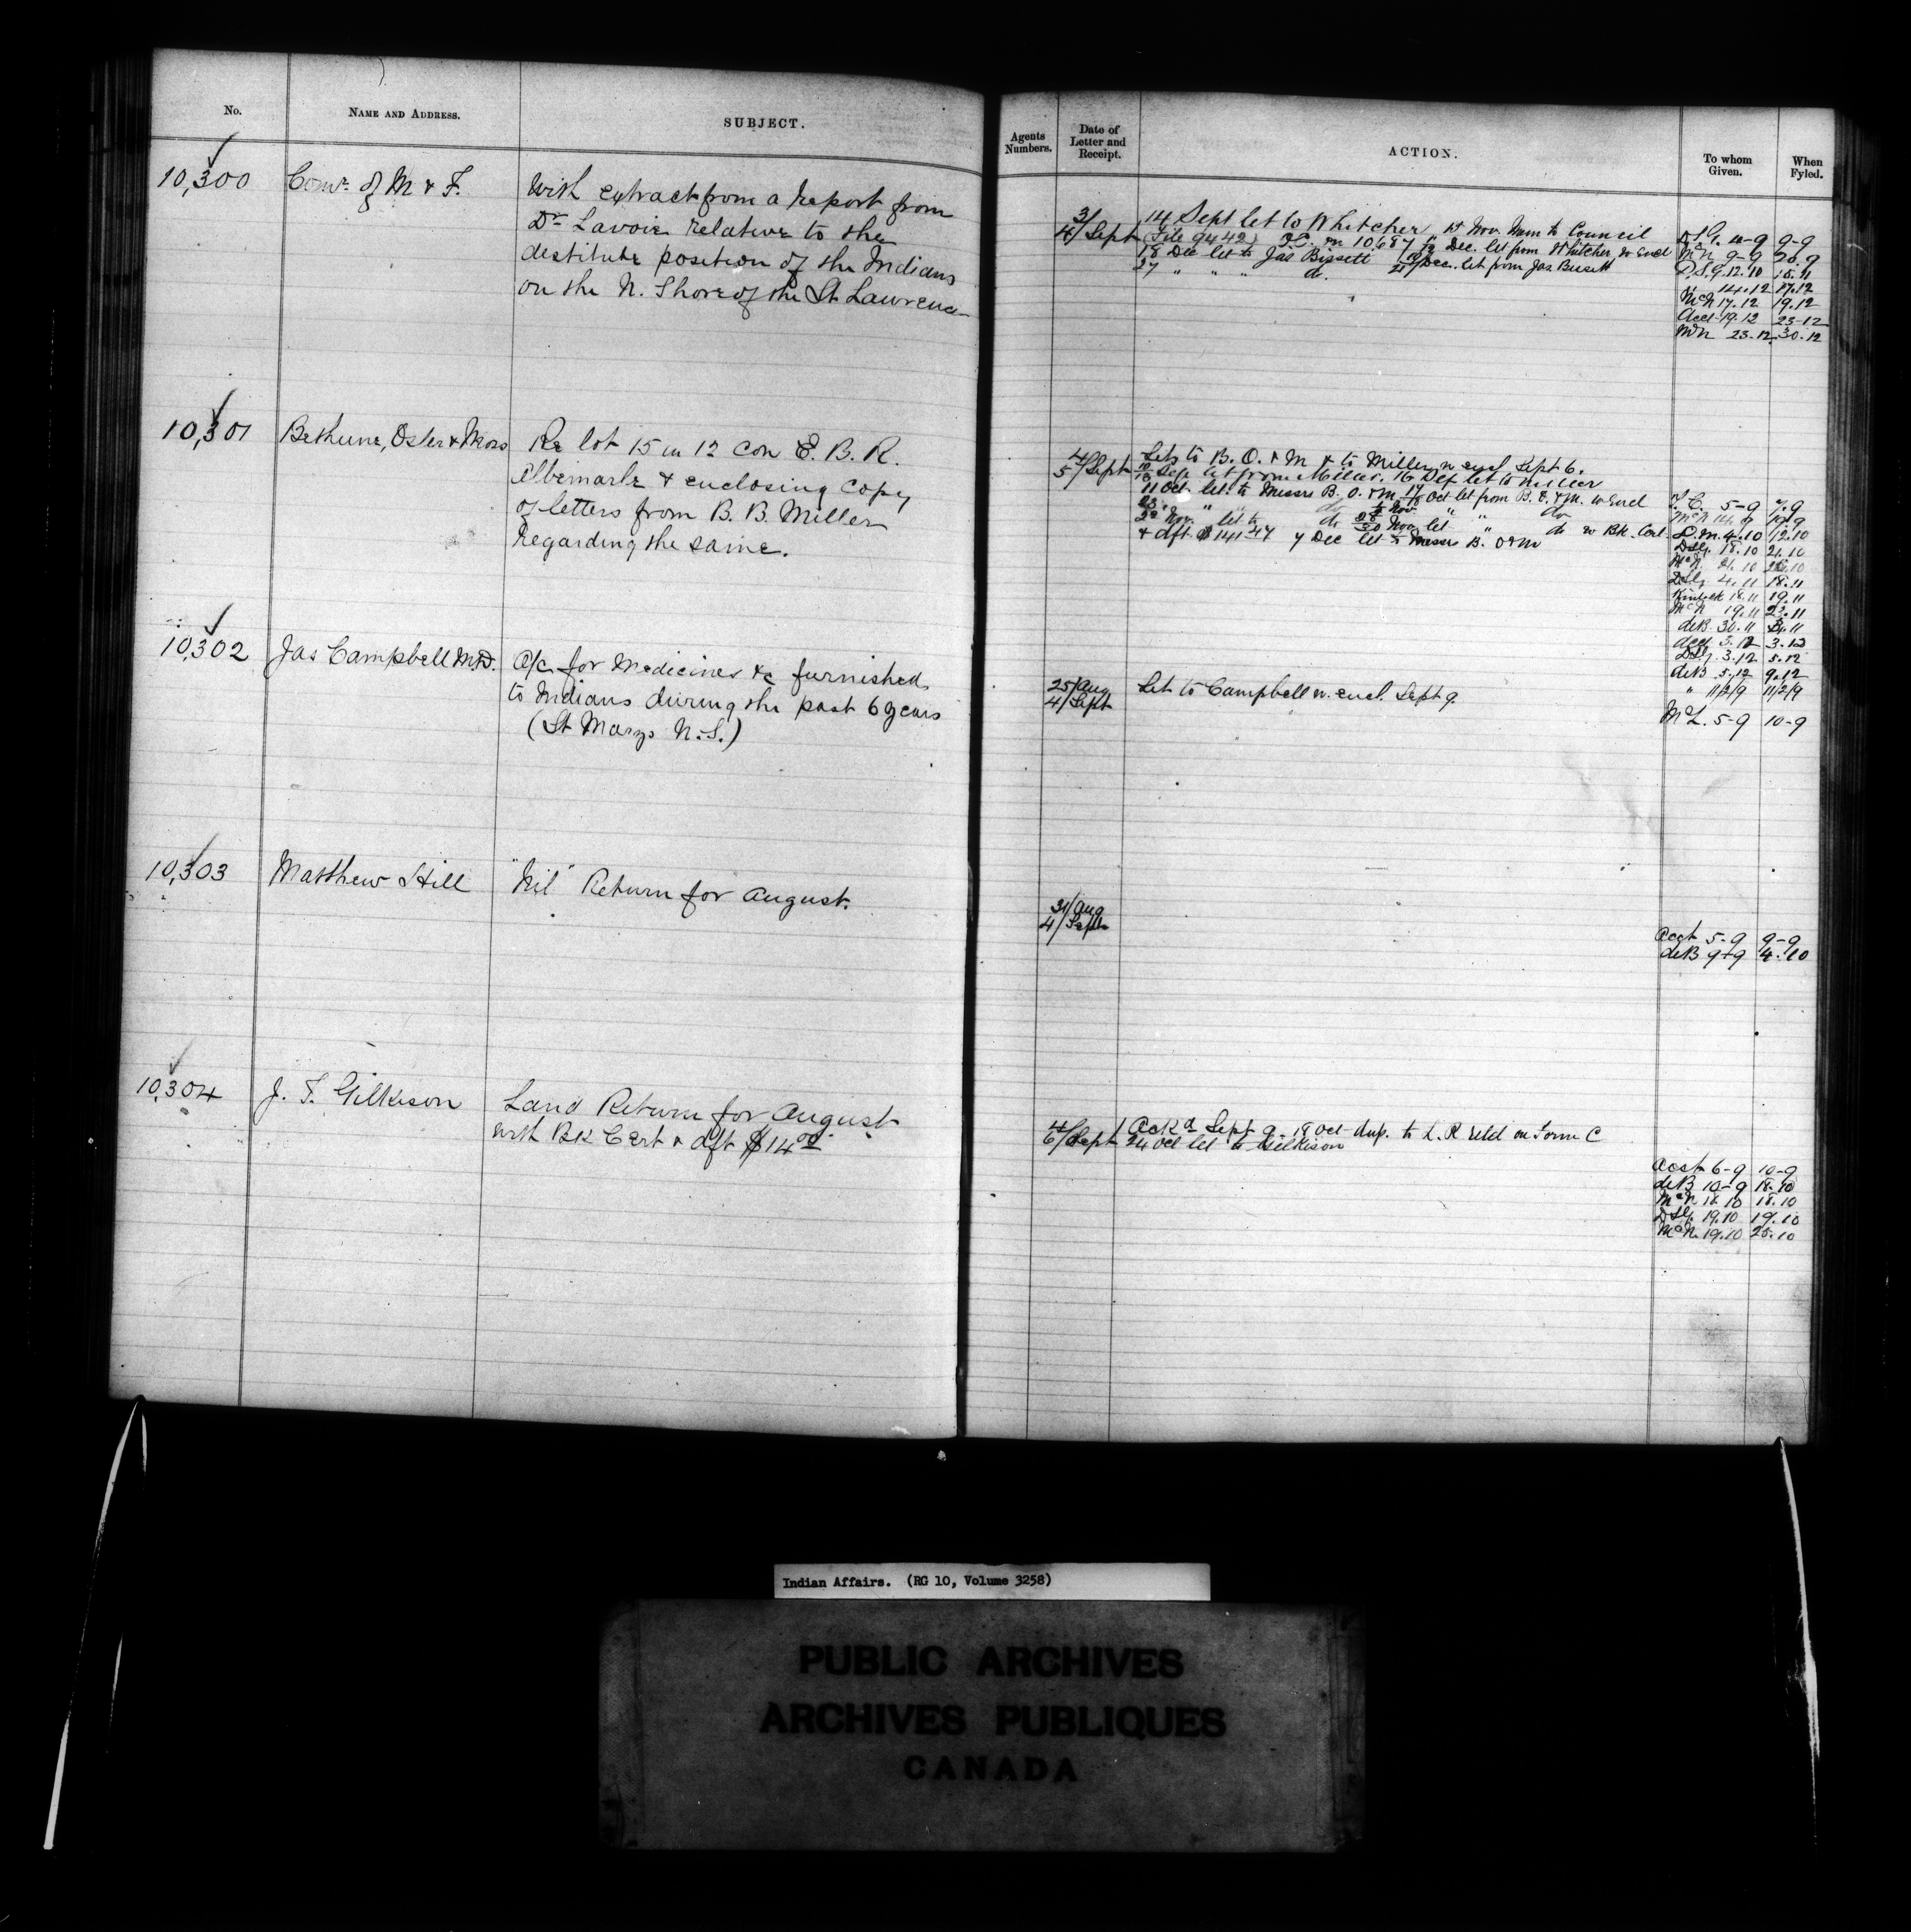 No.
NAME AND ADDRESS.
SUBJECT.
10,300
Comr. of M & F.
With extract from a report from
Dr. Lavoie relative to the
destitute position of the Indians
on the N. Shore of the St Lawrence
10,301
Bethune, Osler & Moss
Re lot 15 in 12 con E. B. R.
Albemarle & enclosing copy
of letters from B. B. Miller
regarding the same.
10,302
Jas Campbell M.D.
A/c for Medicines &c furnished
to Indians during the past 6 years
(St Marys N.S.)
10,303
Matthew Hill
"Nil" Return for August.
10,304
J. T. Gilkison
Land Return for August
with Bk Cert & dft $14 00
Agents Numbers.
Date of Letter and Receipt.
ACTION.
To whom Given.
When Fyled.
3/
4/Sept
14 Sept let to Whitcher 15 Nov. Mem to Council
(File 9442) O.C. in 10,687 Dec. let from Whitcher w encl
18 Dec let to Jas Bissett Dec. let from Jas Bissett
27 " " " do.
10-9 9-9
McN 9-9 20.9
D.S.G. 12.10 15.11
" 14.12 17.12
McN 17.12 19.12
Acct 19.12 23-12
McN 23.12 30.12
4/
5/Sept
Lets to B. O. & M & to Miller w encl Sept 6.
Sep let from Miller. 16 Sep let to Miller
11 Oct. let. to Messrs B. O. & M. Oct let from B. O. & M. w encl
" " do Nov " " do
22 Nov. let to do Nov. let " do w Bk. Cert
& dft $141 47 7 Dec let to Messrs B. O & M
5-9 7.9
McN 14.9 19.9
4.10 12.10
18.10 21.10
McN 21.10
4.11 18.11
18.11 19.11
McN 19.11 23.11
deB 30.11
3.12 3.12
3.12 5.12
deB 5.12 9.12
" 11/2/9 11/2/9
25/Aug
4/Sept
Let to Campbell w. encl. Sept 9
McL. 5-9 10-9
31/Aug
4/Sept
Acct 5-9 9-9
deB 9-9 4.10
4/
6/Sept
Ackd Sept 9. 18 Oct dup. to L. R. retd on Form C
24 Oct let to Gilkison
Acct 6-9 10-9
deB 10-9 18.10
McN 18.10 18.10
19.10 19.10
McN 19.10 25.10
Indian Affairs. (RG 10, Volume 3258)
PUBLIC ARCHIVES
ARCHIVES PUBLIQUES
CANADA